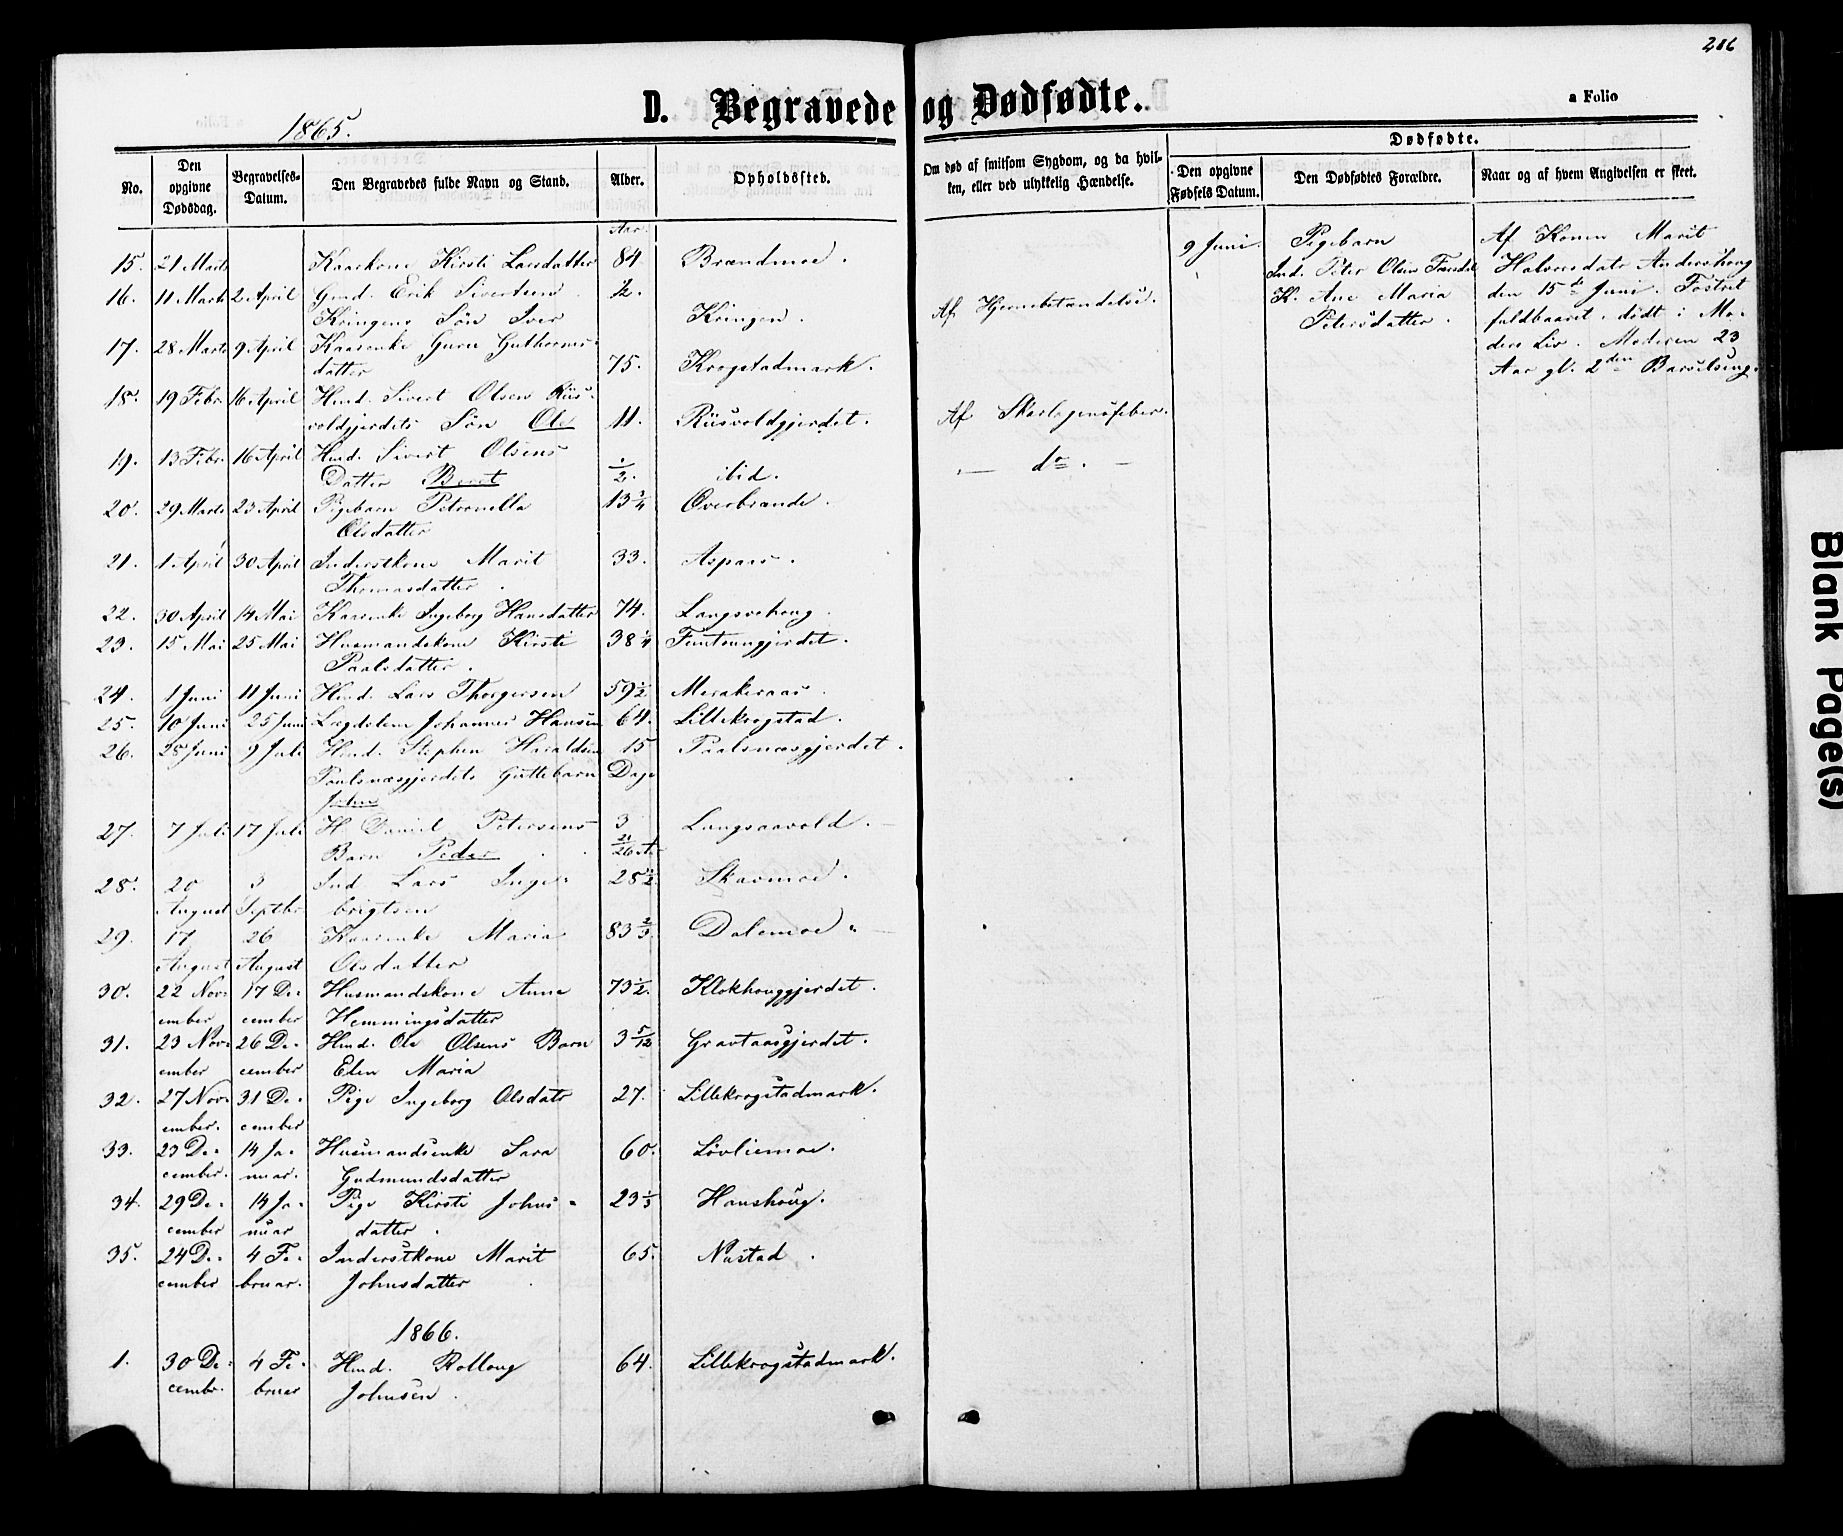 206
D. Begravede og Dødfødte.
a Folio
1865.
No.
Den opgivne Dødsdag.
Begravelses-Datum.
Den Begravedes fulde Navn og Stand.
Alder.
Opholdssted.
Om død af smitsom Sygdom, og da hvilken, eller ved ulykkelig Hændelse.
Dødfødte.
Den opgivne Fødsels Datum.
Den Dødfødtes Forældre.
Naar og af hvem Angivelsen er skeet.
Aar.
15. 21 Marts Kaarkone Kirsti Larsdatter 84 Brandmoe.
16. 11 Marts 2 April Gmd. Erik Sivertsens ½.
Kringens Søn Iver Kringen. Af Hjernebetændelse.
17. 28 Marts 9 April Kaarenke Guru Guthorms-
datter 75. Krogstadmark.
18. 19 Febr. 16 April Hmd. Sivert Olsens Rus-
voldgjerdets Søn Ole 11. Rusvoldgjerdet. Af Skarlagensfeber.
19. 13 Febr. 16 April Hmd. Sivert Olsens
Datter Beret ½. ibid. — do. —
20. 29 Marts 23 April Pigebarn Petronella 13 ¾ Overbrande.
Olsdatter
21. 1 April 30 April Inderstkone Marit 33. Aspaas.
Thomasdatter.
22. 30 April 14 Mai Kaarenke Ingeborg Hansdatter 74. Langsvehoug.
23. 15 Mai 25 Mai Husmandskone Kirsti 38 ¼ Funtoungjerdet.
Paalsdatter.
24. 1 Juni 11 Juni Hmd. Lars Thorgersen 59 ½ Merakeraas.
25. 10 Juni 25 Juni Lægdslem Johannes Hansen 64. Lillekrogstad.
26. 25 Juni 9 Juli Hmd. Stephen Haraldsen 15 Paalsnæsgjerdet.
Paalsnæsgjerdets Guttebarn Dage
John
27. 7 Juli 17 Juli H. Daniel Petersens 3 Langsaavold.
Barn Peder
28. 20 3 Ind. Lars Inge- 25 ½ Skavmoe.
August Septbr. brigtsen
29. 17 26 Kaarenke Maria 83 ⅔. Dalemoe
August August Olsdatter
30. 22 Nov- 17 De- Husmandskone Anne 73 ½. Klokhouggjerdet.
ember cember Hemmingsdatter
31. 23 Nov- 26 De- Hmd. Ole Olsens Barn 3 5/12 Gravtaasgjerdet.
ember cember Elen Maria
32. 27 Nov- 31 De- Pige Ingeborg Olsdatr 27. Lillekrogstadmark.
ember. cember
33. 23 De- 14 Ja- Husmandsenke Sara 60. Lovliemoe.
cember. nuar. Gudmundsdatter
34. 29 De- 14 Ja- Pige Kirsti Johns- 23 ⅓ Hanshoug.
cember nuar datter.
35. 24 De- 4 Fe- Inderstkone Marit 65. Nustad.
cember bruar. Johnsdatter
1866.
1. 30 De- 4 Fe- Hmd. Rolloug 64. Lillekrogstadmark.
cembr. bruar Johnsen.
9 Juni. Pigebarn
Ind. Peter Olsen
K. Ane Maria
Petersdatter.
Af Konen Marit
Halvorsdatr Andershoug
den 15de Juni. Fostret
fuldbaaret. dødt i Mo-
ders Liv. Moderen 23
Aar gl. 2den Barselseng.
Blank Page(s)